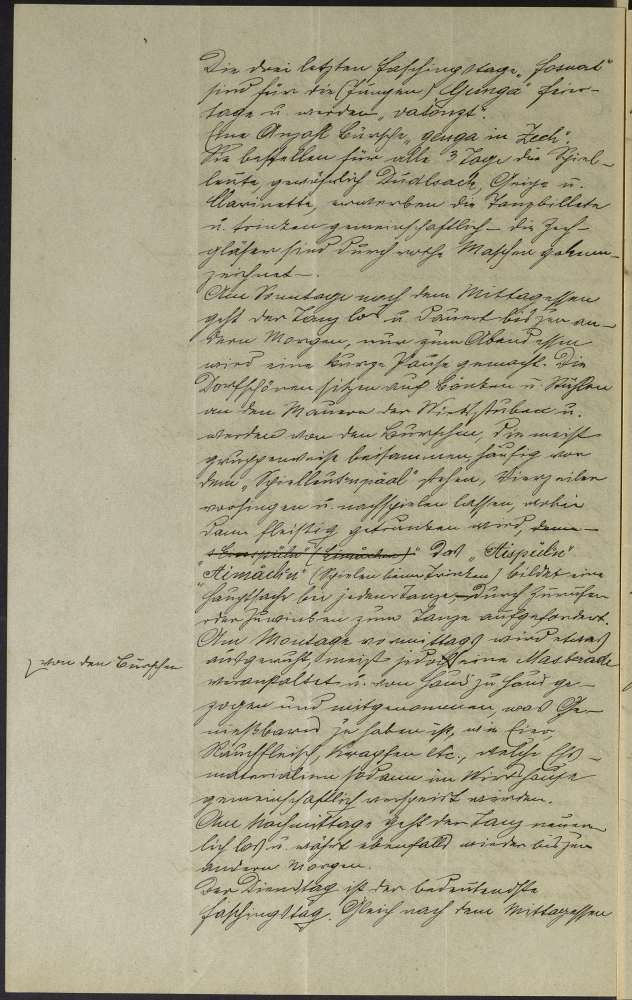 Die drei letzten Faschingstage „Fosnat“
sind für die (Jungen) „Gunga“ Feier-
tage u. werden „vatonzt“.
Eine Anzahl Bursche, „genga in Zech“.
Sie bestellen für alle 3 Tage die Spiel-
leute, gewöhnlich Dudlsack, Geige u.
Clarinette, erwerben die Tanzbillete
u. trinken gemeinschaftlich – die Zech-
gläser sind durch rothe Maschen gekenn-
zeichnet –.
Am Sonntage nach dem Mittagessen
geht der Tanz los u. dauert bis zum an-
dern Morgen, nur zum Abendessen
wird eine kurze Pause gemacht. Die
Dorfschönen sitzen auf Bänken u. Stühlen
an den Mauern der Wirtsstuben u.
werden von den Burschen, die meist
gruppenweise beisammen häufig vor
dem „Spielleutnpàal“ stehen, Vierzeiler
vorsingen u. nachspielen lassen, wobei
dann fleißig getrunken wird, denn
das „Aispüeln“
„Aimàchn“ (Spielen beim Trinken) bildet eine
Hauptsache bei jedem Tanze, durch Zurufen
oder Zuwinken zum Tanze aufgefordert.
Am Montage vormittags wird etwas
ausgeruht, meist jedoch eine Maskerade
von den Burschen
veranstaltet u. von Haus zu Haus ge-
zogen und mitgenommen, was Ge-
nießbares zu haben ist, wie Eier,
Rauchfleisch, Krapfen etc., welche Eß-
materialien sodann im Wirtshause
gemeinschaftlich verspeist werden.
Am Nachmittage geht der Tanz neuer-
lich los u. währt ebenfalls wieder bis zum
andern Morgen.
Der Dienstag ist der bedeutendste
Faschingstag. Gleich nach dem Mittagessen